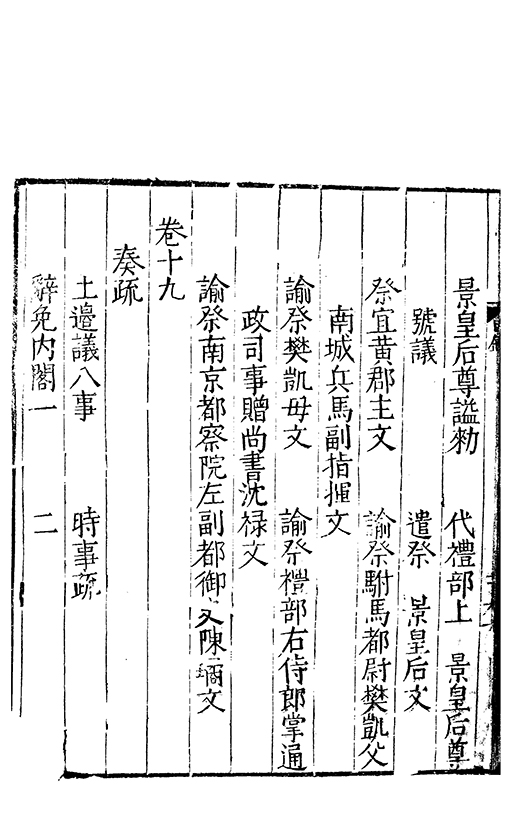 景皇后尊謚勑　代禮部上　景皇后尊
號議　遣祭　景皇后文
祭宜黃郡主文　諭祭駙馬都尉樊凱父
南城兵馬副指揮文
諭祭樊凱母文　諭祭禮部右侍郎掌通
政司事贈尚書沈禄文
諭祭南京都察院左副都御史陳璚文
卷十九
奏疏
土邉議八事　時事疏
辭免内閣一　二